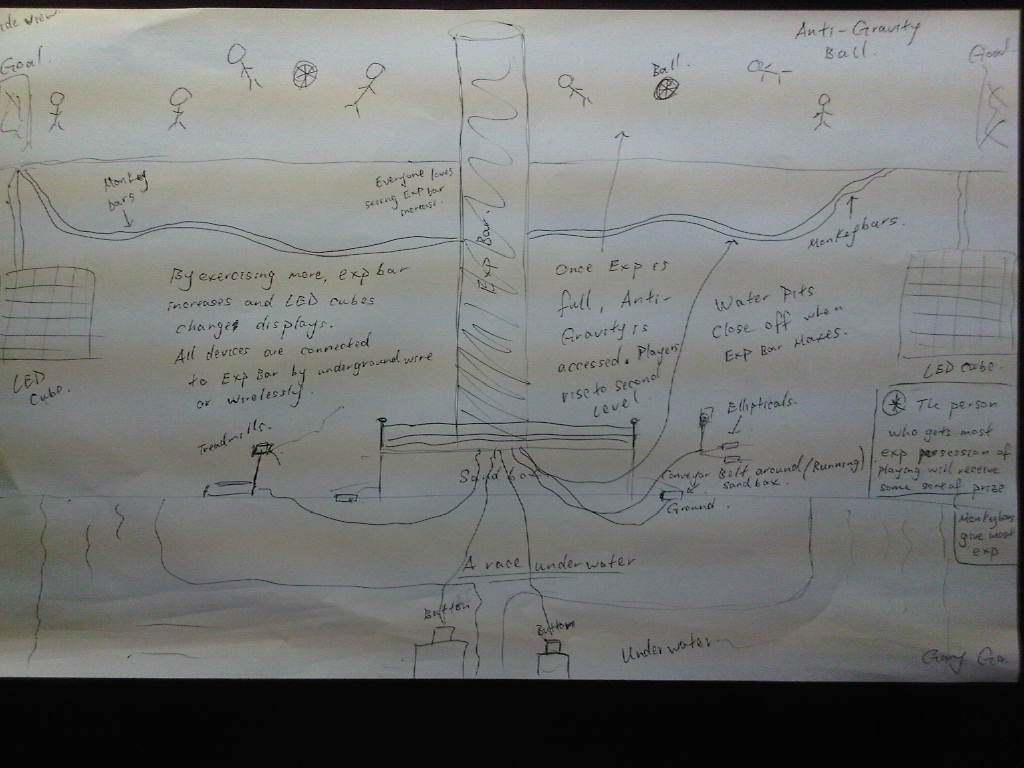 Side view
Anti-Gravity
Ball.
Goal
Goal
Ball.
Monkey
bars
Everyone loves
seeing Exp bar
increase.
Exp Bar.
Monkeybars.
By exercising more, exp bar
increases and LED cubes
changes displays.
All devices are connected
to Exp Bar by underground wire
or wirelessly.
Once Exp is
full, Anti-
Gravity is
accessed. Players
rise to second
level.
Water Pits
close off when
Exp Bar Maxes.
LED
Cube.
LED Cube.
The person
who gets most
exp possession of
playing will receive
some sort of prize
Treadmills.
Ellipticals.
Conveyor Belt around/(Running)
sandbox.
Sandbox
Ground.
Monkeybars
give most
exp
A race underwater
Button
Button
Underwater